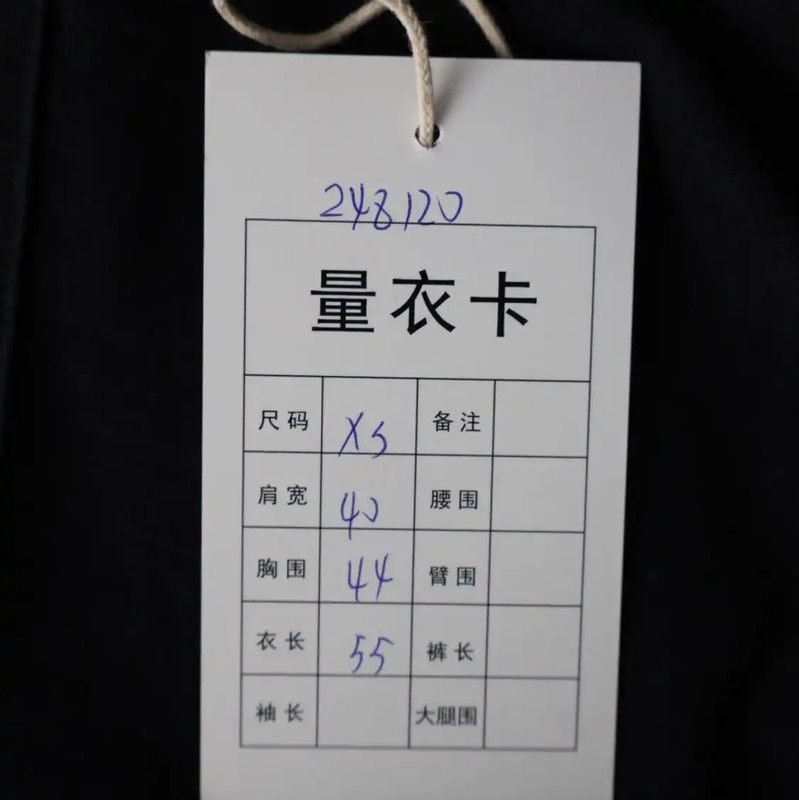 248120
量衣卡
尺码 XS 备注
肩宽 40 腰围
胸围 44 臂围
衣长 55 裤长
袖长 大腿围